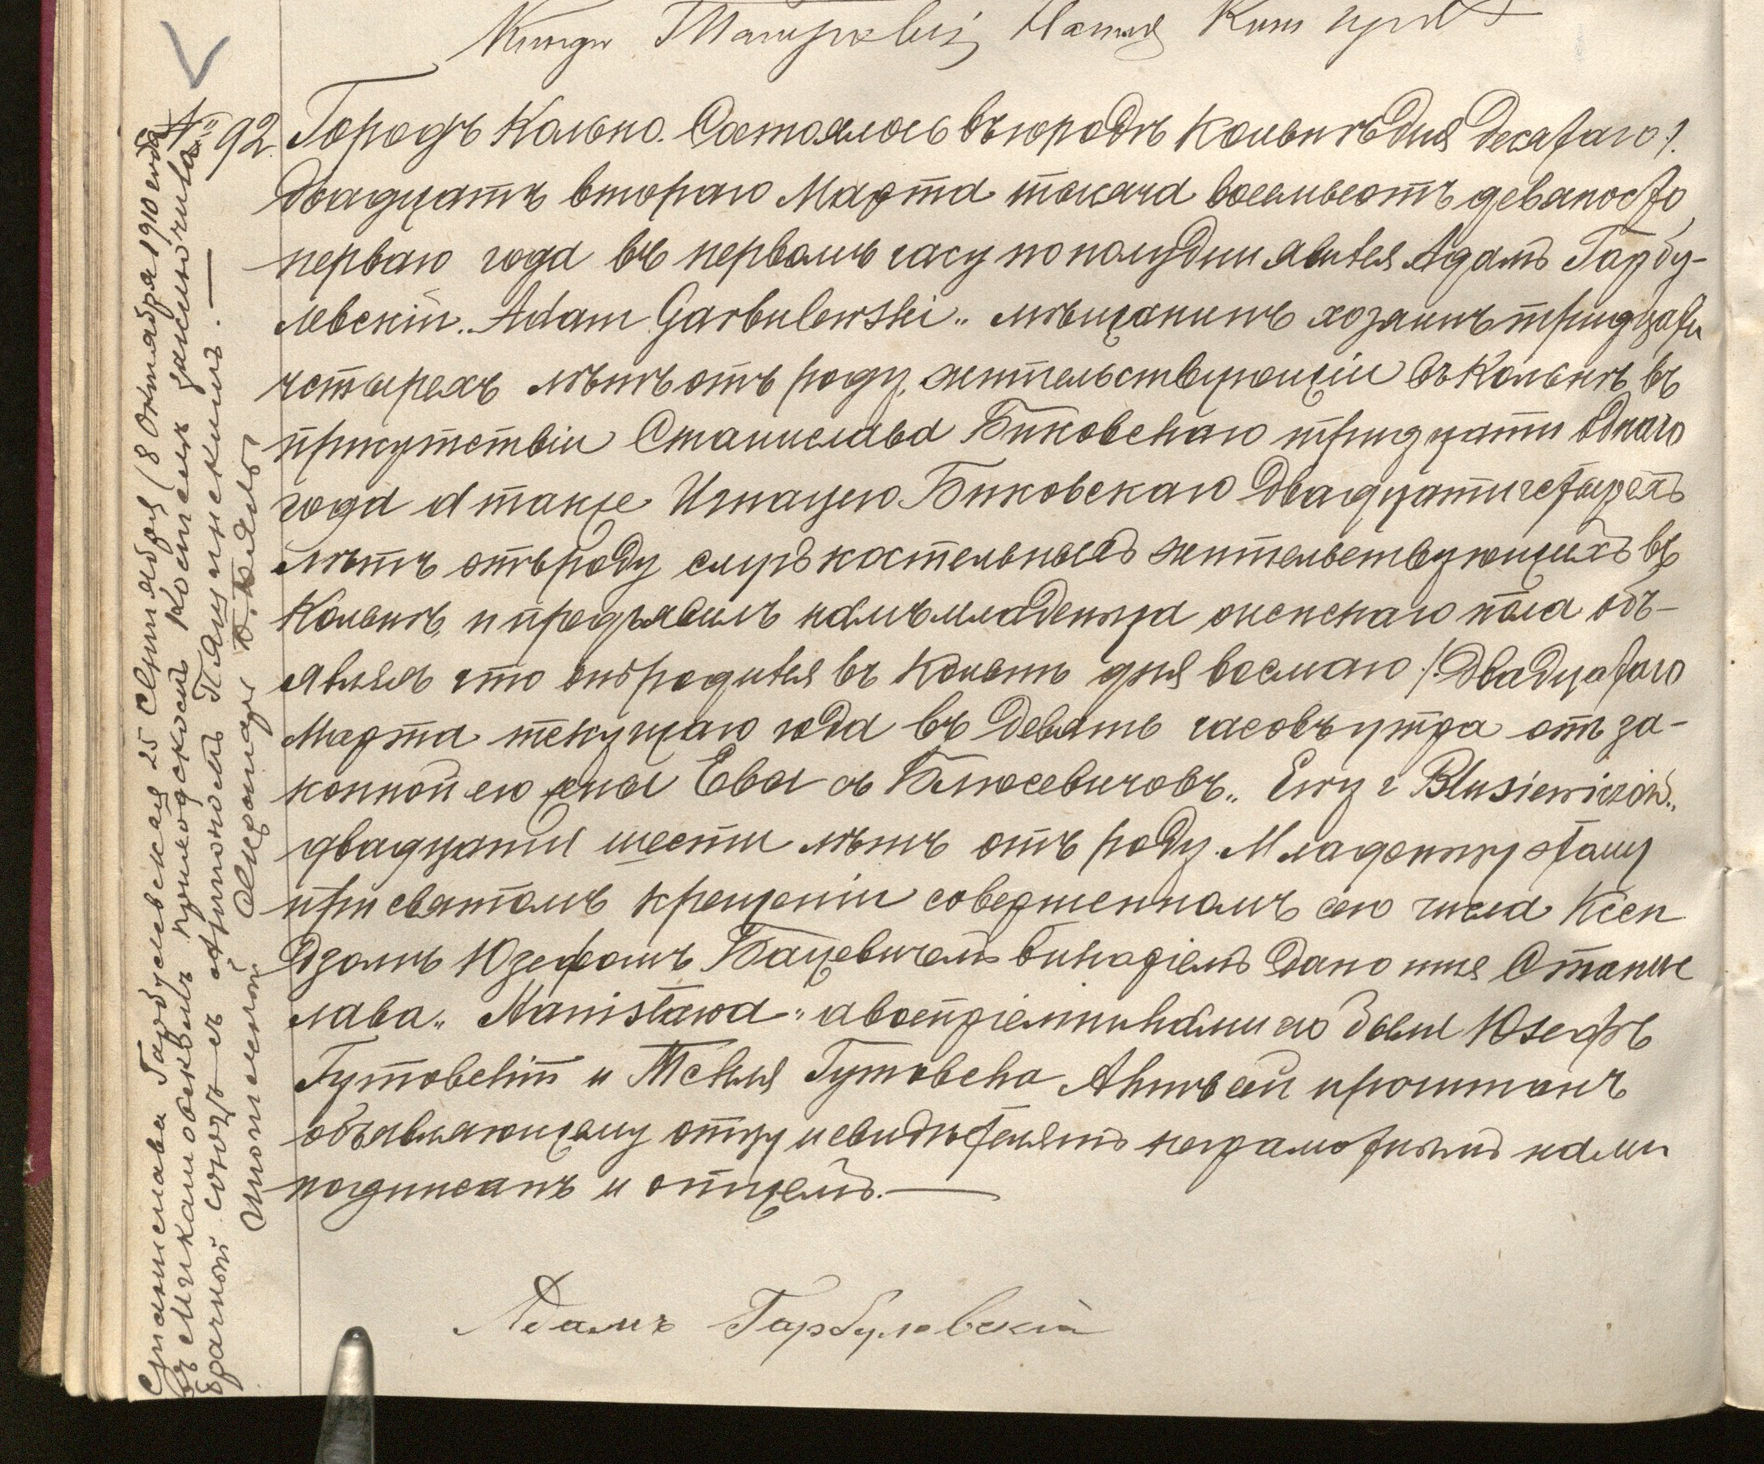 № 92.
Городъ Кольно. Состоялось въ городѣ Кольнѣ дня десятаго /.
двадцать втораго Марта тысяча восемьсотъ девяносто
перваго года въ первомъ часу по полудни явился Адамъ Гарбу-
левскій „Adam Garbulewski„ мѣщанинъ хозяинъ тридцати
четырехъ лѣтъ отъ роду, жительствующій въ Кольнѣ, въ
присутствіи Станислава Быковскаго тридцати одного
года и также Игнацего Быковскаго двадцати четырехъ
лѣтъ отъ роду слугъ костельныхъ жительствующихъ въ
Кольнѣ, и предъявилъ намъ младенца женскаго пола объ-
являя что онъ родился въ Кольнѣ дня восмаго /. двадцатаго
Марта текущаго года въ девять часовъ утра отъ за-
конной его жены Евы съ Блюсевичовъ „Ewy z Blusiewiczów„
двадцати шести лѣтъ отъ роду. Младенцу этому
при святомъ крещеніи совершенномъ сего числа Ксен
дзомъ Юзефомъ Бацевичемъ Викаріемъ дано имя Станис
лава „Stanisława„ а воспріемниками его были Юзефъ
Гутовскій и Текля Гутовска Актъ сей прочитанъ
объявляющему отцу и свидѣтелямъ неграмотнымъ нами
подписанъ и отцемъ.
Адамъ Гарбулевскій
Станислава Гарбулевская 25 Сентября (8 Октября 1910 года
въ приходскомъ костелѣ заключила
брачный союзъ съ Антономъ